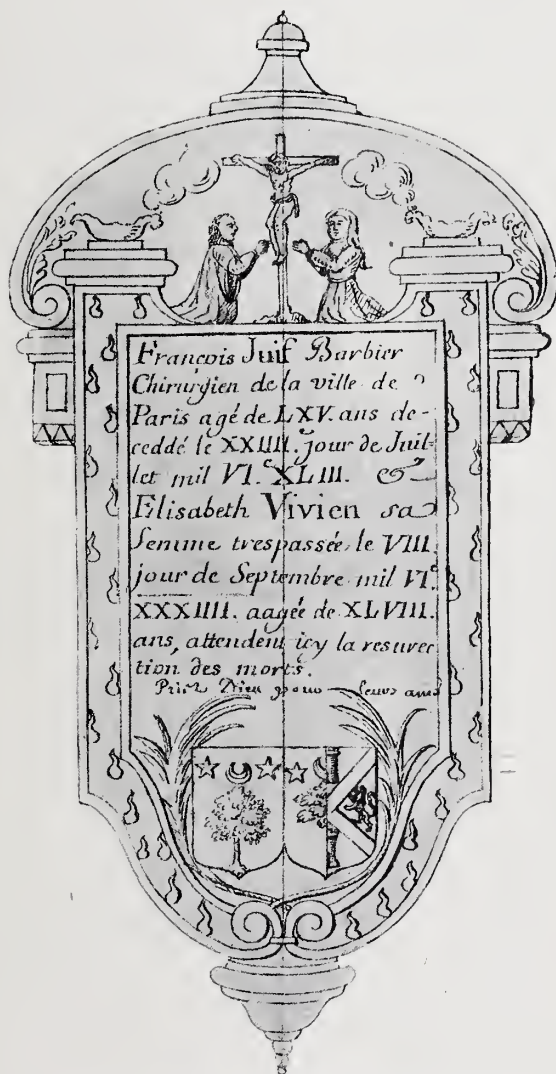 Francois Juif Barbier
Chirurgien de la ville de
Paris agé de LXV. ans de-
ceddé le XXIIII.e jour de Juil-
let mil VI.c XLIII. &
Elisabeth Vivien sa
femme trespassée le VIII.
jour de Septembre mil VI.c
XXXIIII. aagée de XLVIII.
ans, attendent icy la resurec
tion des morts.
Priez Dieu pour leurs ames